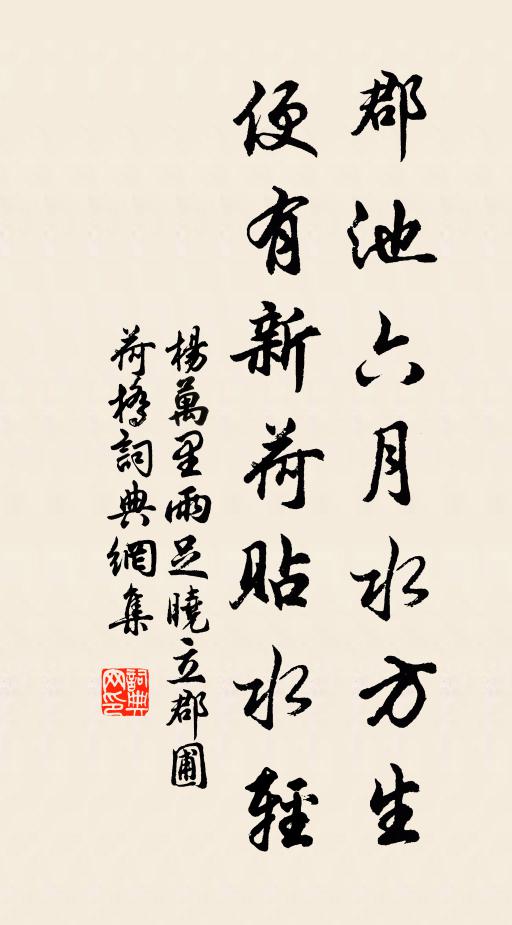 郡池六月水方生
便有新荷貼水輕
楊萬里雨足曉立郡圃
荷橋詞典網集
詞典網印